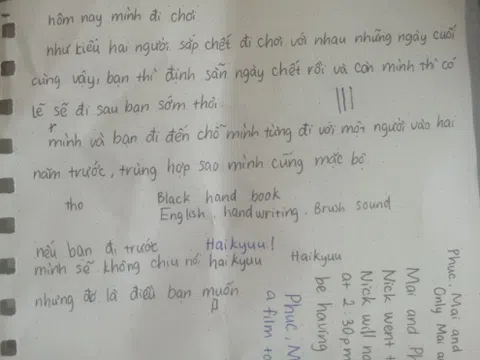 hôm nay mình đi chơi
như kiểu hai người sắp chết đi chơi với nhau những ngày cuối
cùng vậy, bạn thì định sẵn ngày chết rồi và còn mình thì có
lẽ sẽ đi sau bạn sớm thôi.
mình và bạn đi đến chỗ mình từng đi với một người vào hai
năm trước, trùng hợp sao mình cũng mặc bộ
tho
Black hand book
English. handwriting. Brush sound
nếu bạn đi trước
Haikyuu!
mình sẽ không chịu nổi haikyuu
Haikyuu
nhưng đó là điều bạn muốn
Phuc, Mai and
Only Mai a
Mai and Ph
Nick went t
Nick will no
at 2:30 pm
be having
Phuc, M
a film to